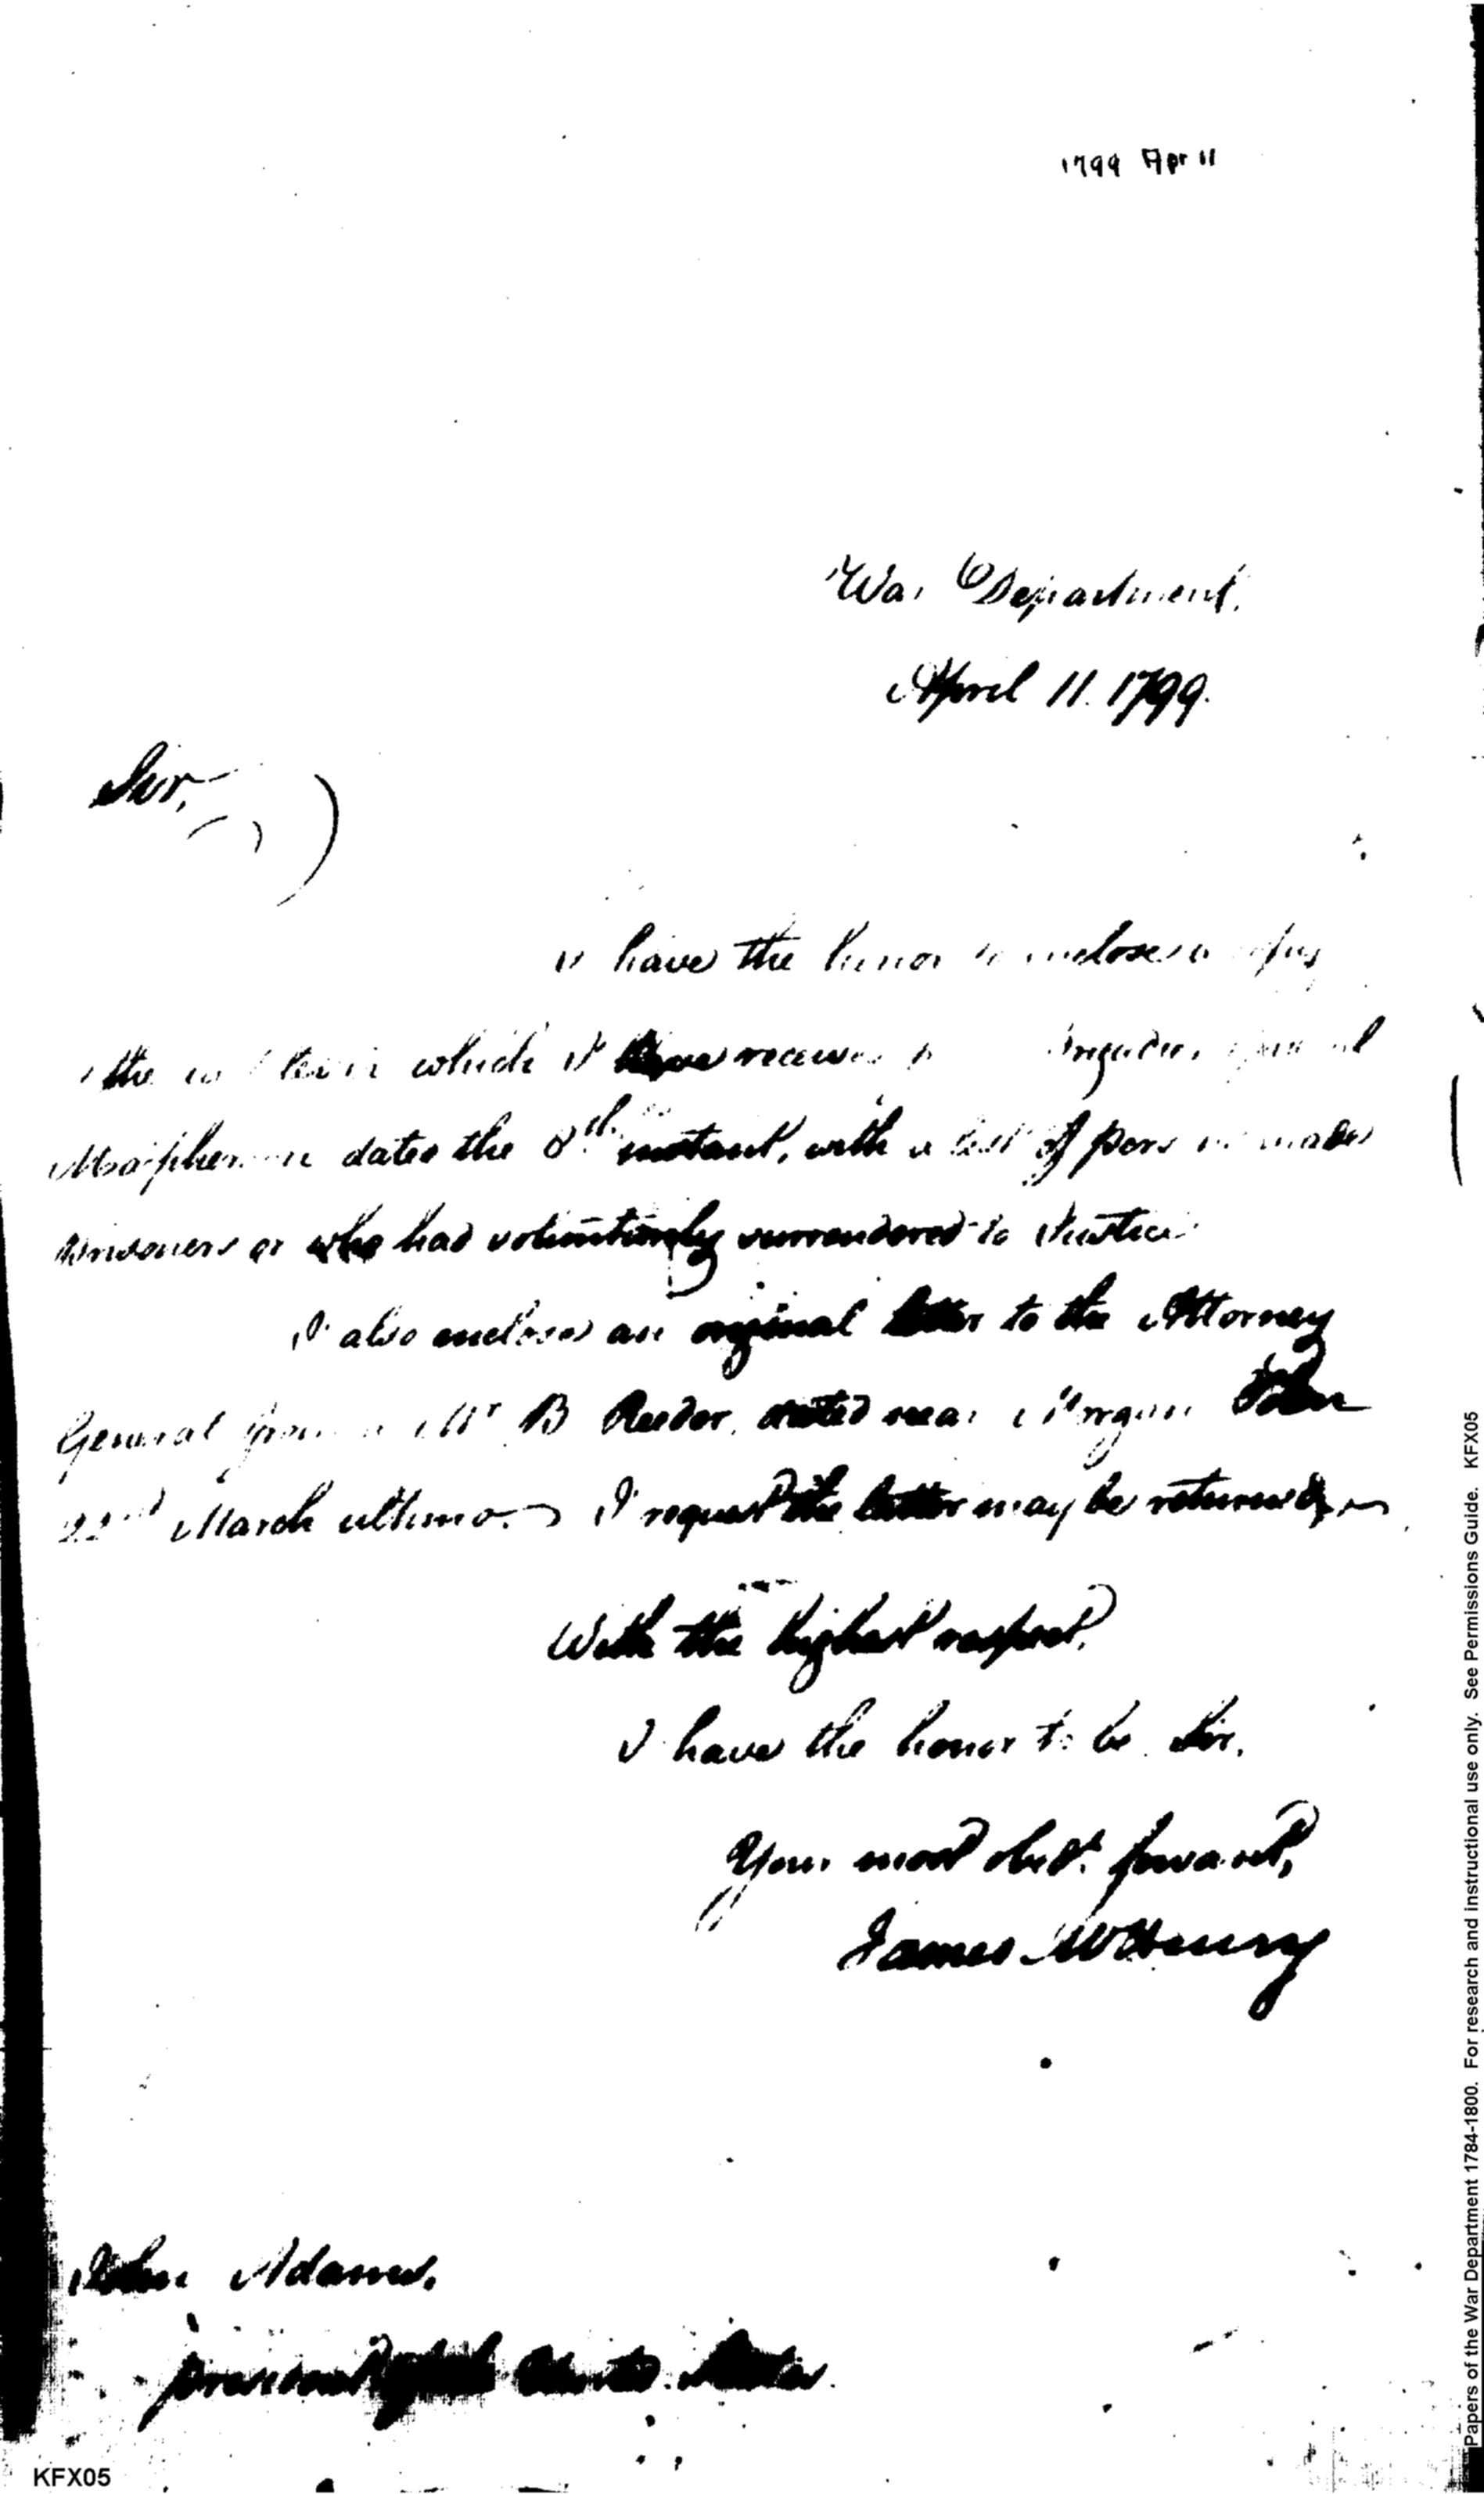 1799 Apr 11
War Department.
April 11. 1799.
Sir,
I have the honor to enclose a copy
the which I have received Brigadier General
Macpherson dated the 8th instant, with a list of persons made
prisoners or who had voluntarily surrendered to Justice
I also enclose an original letter to the Attorney
General from Mr B Reeder, dated near Morgan Town
22nd March ultimo. I request the letter may be returned
With the highest respect,
I have the honor to be Sir,
Your most obdt. servant,
James McHenry
John Adams,
President of the United States.
KFX05
Papers of the War Department 1784-1800. For research and instructional use only. See Permissions Guide. KFX05